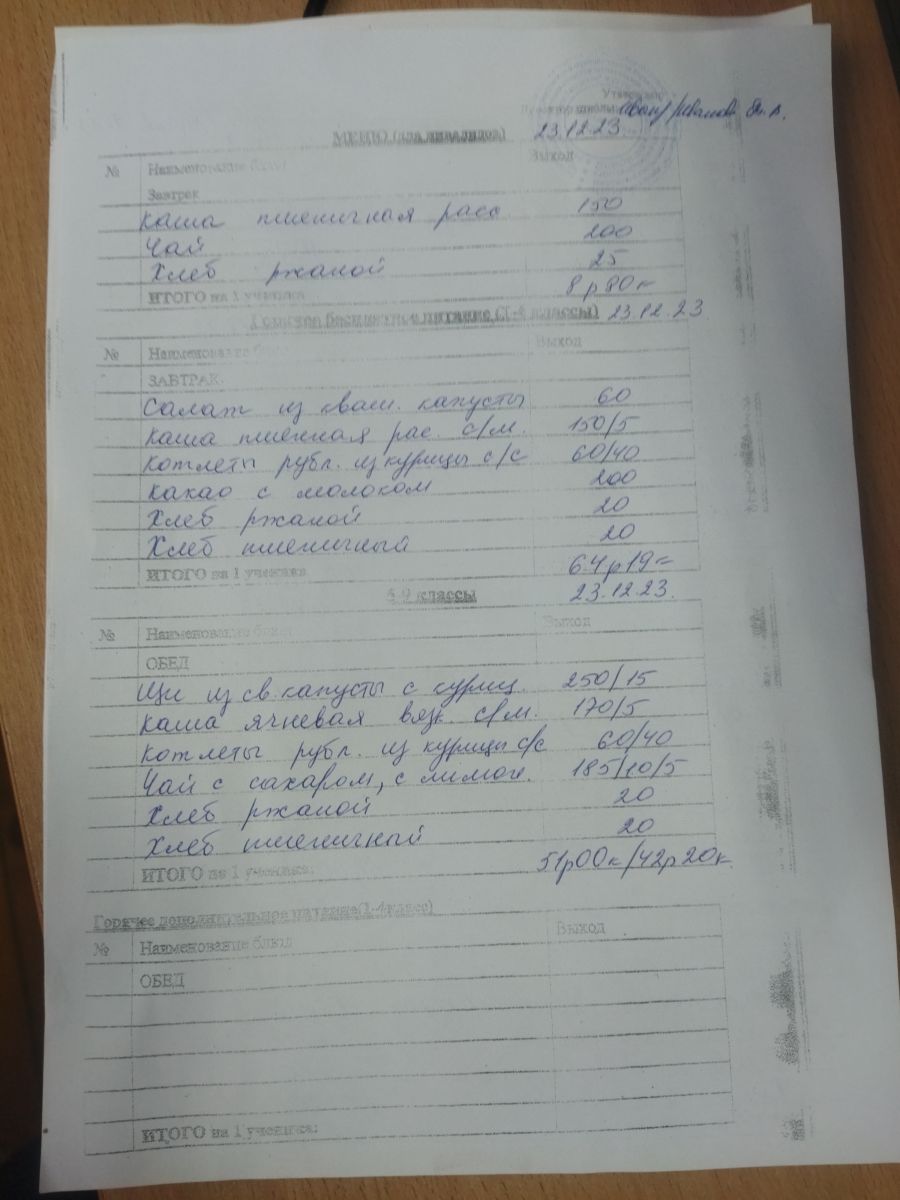 Утверждаю
Директор школы
МЕНЮ (для инвалидов) 23.12.23
№ Наименование блюд Выход
Завтрак
Каша пшеничная расс 150
Чай 200
Хлеб ржаной 25
ИТОГО на 1 ученика 8р80к
Горячее бесплатное питание (1-4 классы) 23.12.23
№ Наименование блюд Выход
ЗАВТРАК
Салат из кваш. капусты 60
Каша пшенная рас. с/м. 150/5
Котлеты рубл. из курицы с/с 60/40
Какао с молоком 200
Хлеб ржаной 20
Хлеб пшеничный 20
ИТОГО на 1 ученика 64р19=
5-9 классы 23.12.23.
№ Наименование блюд Выход
ОБЕД
Щи из св. капусты с куриц. 250/15
Каша ячневая вязк. с/м. 170/5
Котлеты рубл. из курицы с/с 60/40
Чай с сахаром, с лимон. 185/10/5
Хлеб ржаной 20
Хлеб пшеничный 20
ИТОГО на 1 ученика: 51р00к/42р20к
Горячее дополнительное питание(1-4 класс)
№ Наименование блюд Выход
ОБЕД
ИТОГО на 1 ученика: